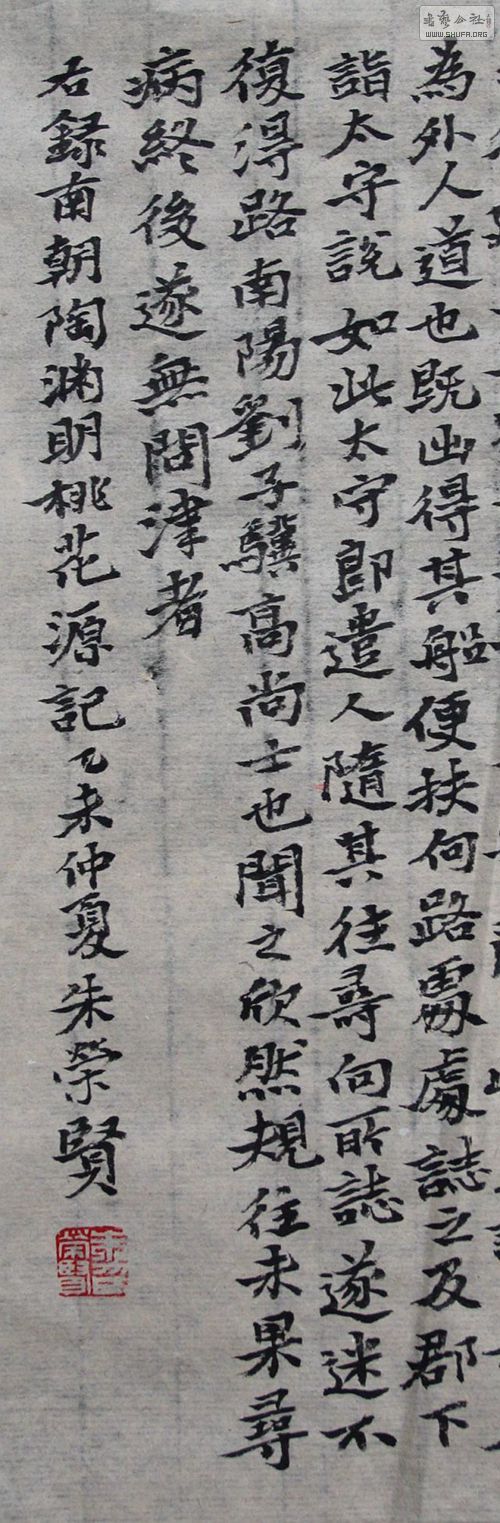 為外人道也既出得其船便扶向路處處誌之及郡下
詣太守說如此太守即遣人隨其往尋向所誌遂迷不
復得路南陽劉子驥高尚士也聞之欣然規往未果尋
病終後遂無問津者
右録南朝陶渊明桃花源記乙未仲夏朱榮賢
書法公社
WWW.SHUFA.ORG